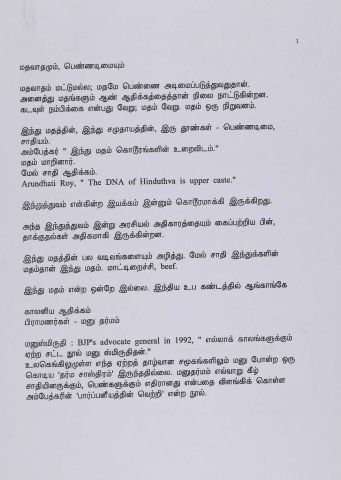 1
மதவாதமும், பெண்ணடிமையும்
மதவாதம் மட்டுமல்ல; மதமே பெண்ணை அடிமைப்படுத்துவதுதான்.
அனைத்து மதங்களும் ஆண் ஆதிக்கத்தைத்தான் நிலை நாட்டுகின்றன.
கடவுள் நம்பிக்கை என்பது வேறு; மதம் வேறு. மதம் ஒரு நிறுவனம்.
இந்து மதத்தின், இந்து சமுதாயத்தின், இரு தூண்கள் - பெண்ணடிமை,
சாதியம்.
அம்பேத்கர் " இந்து மதம் கொடூரங்களின் உறைவிடம்."
மதம் மாறினார்.
மேல் சாதி ஆதிக்கம்.
Arundhati Roy, " The DNA of Hinduthva is upper caste."
இந்துத்துவம் என்கின்ற இயக்கம் இன்னும் கொடூரமாக்கி இருக்கிறது.
அந்த இந்துத்துவம் இன்று அரசியல் அதிகாரத்தையும் கைப்பற்றிய பின்,
தாக்குதல்கள் அதிகமாகி இருக்கின்றன.
இந்து மதத்தின் பல வடிவங்களையும் அழித்து. மேல் சாதி இந்துக்களின்
மதம்தான் இந்து மதம். மாட்டிறைச்சி, beef.
இந்து மதம் என்ற ஒன்றே இல்லை. இந்திய உப கண்டத்தில் ஆங்காங்கே
காலனிய ஆதிக்கம்
பிராமணர்கள் - மனு தர்மம்
மனுஸ்மிருதி : BJP's advocate general in 1992, " எல்லாக் காலங்களுக்கும்
ஏற்ற சட்ட நூல் மனு ஸ்மிருதிதன்."
உலகெங்கிலுமுள்ள எந்த ஏற்றத் தாழ்வான சமூகங்களிலும் மனு போன்ற ஒரு
கொடிய 'தர்ம சாஸ்திரம்' இருந்ததில்லை. மனுதர்மம் எவ்வாறு கீழ்
சாதியினருக்கும், பெண்களுக்கும் எதிரானது என்பதை விளங்கிக் கொள்ள
அம்பேத்கரின் 'பார்ப்பனீயத்தின் வெற்றி' என்ற நூல்.